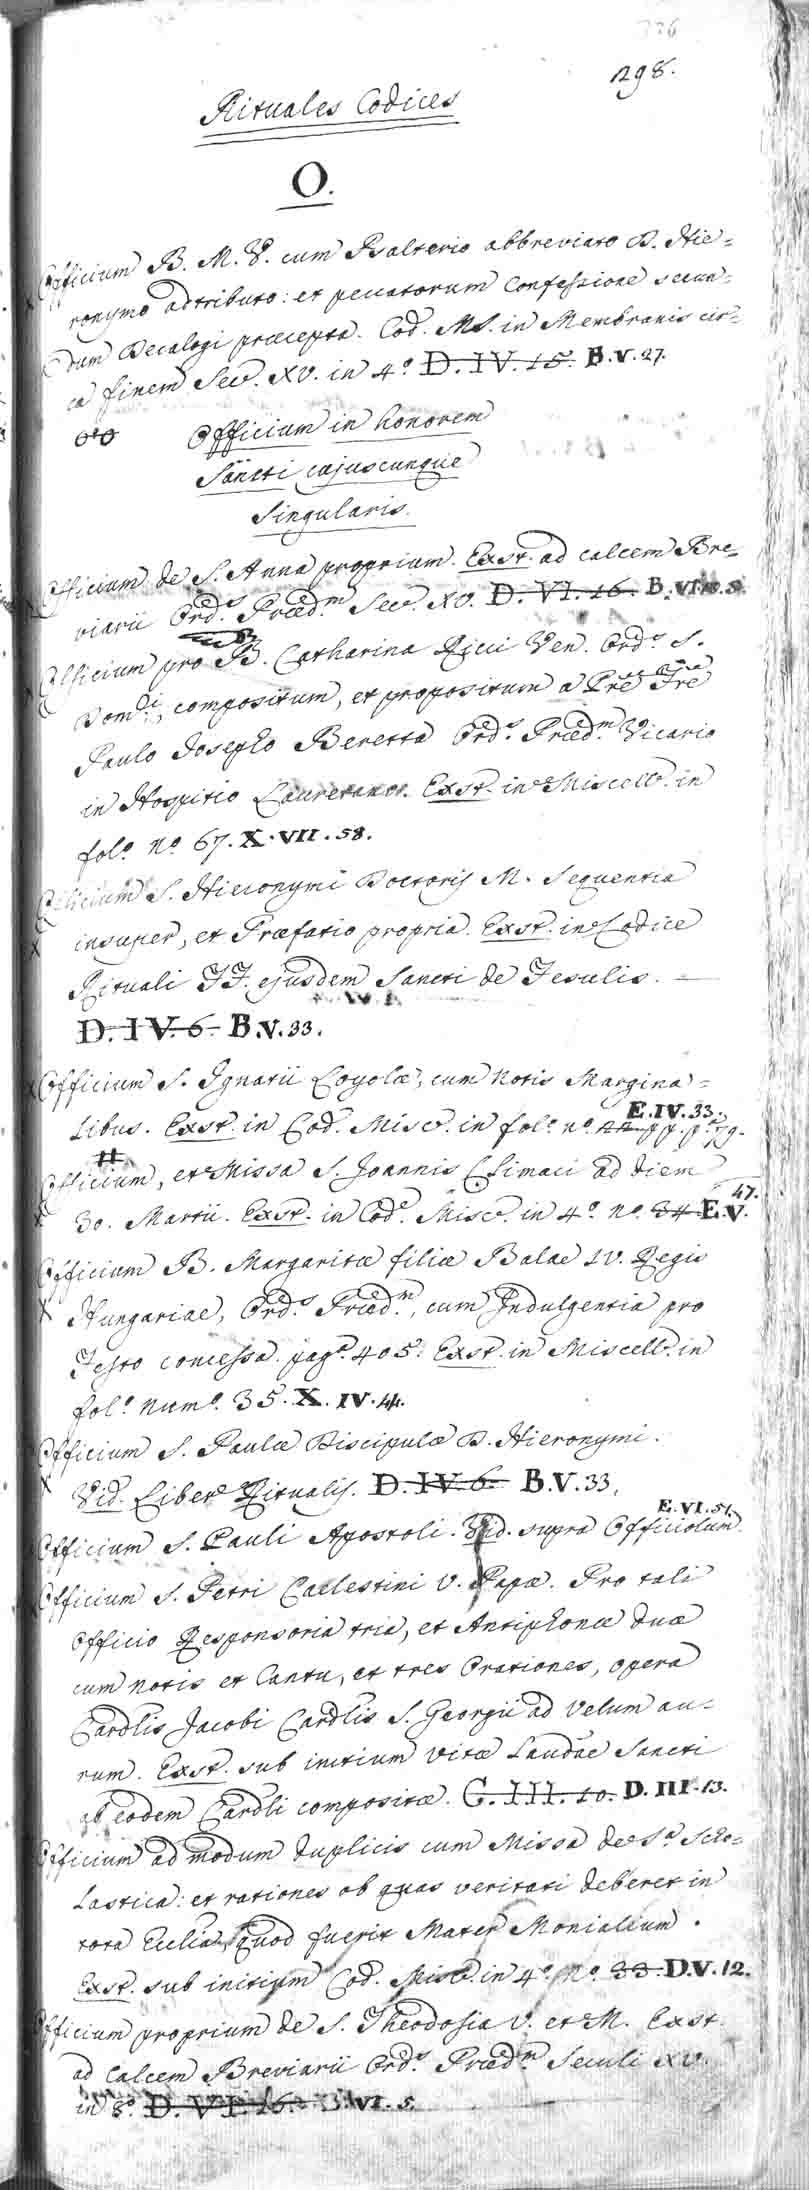 298.
Rituales Codices
O.
Officium B. M. V. cum Psalterio abbreviato D. Hie-
ronymo adtributo: et peccatorum Confessione secun-
dum Decalogi præcepta. Cod. MS. in Membranis cir-
ca finem Sec. XV. in 4.o D. IV. 15. B.V.27.
Officium in honorem
Sancti cujuscunque
Singularis.
Officium de S. Anna proprium. Exst. ad calcem Bre-
viarii Ord.s Præd.m Sec. XV. D. VI. 16. B. VI.
Officium pro B. Catharina Ricci Ven. Ord.s S.
Dom.ci, compositum, et propositum a Pre Fre
Paulo Josepho Beretta Ord.s Præd.m Vicario
in Hospitio Lauretano. Exst. in Miscell. in
fol.o n.o 67. X. VII. 58.
Officium S. Hieronymi Doctoris M. Sequentia
insuper, et Præfatio propria. Exst. in Codice
Rituali FF. ejusdem Sancti de Fesulis.
D. IV. 6. B.V. 33.
Officium S. Ignatii Loyolæ, cum notis Margina-
libus. Exst. in Cod. Misc. in fol.o n.o E.IV.33. 79.
Officium, et Missa S. Joannis Climaci ad diem
30. Martii. Exst. in Cod.e Misc. in 4.o no. 34 E.V. 47.
Officium B. Margaritæ filiæ Balae IV. Regis
Hungariae, Ord.s Præd.m, cum Indulgentia pro
Festo concessa. pag.a 405. Exst. in Miscell. in
fol.o num.o 35. X. IV. 44.
Officium S. Paulæ Discipulæ D. Hieronymi.
Vid. Liber Ritualis. D. IV. 6. B.V. 33.
Officium S. Pauli Apostoli. Vid. supra Officiolum. E.VI.51.
Officium S. Petri Caelestini V. Papæ. Pro tali
Officio Responsoria tria, et Antiphonæ duæ
cum notis et Cantu, et tres Orationes, opera
Cardlis Jacobi Cardlis S. Georgii ad Velum au-
rum. Exst. sub initium vitæ Laudae Sancti
ab eodem Cardli compositæ. C. III. 10. D. III. 13.
Officium ad modum duplicis cum Missa de S.a Scho-
lastica: et rationes ob quas veritati deberet in
tota Ecclia, quod fuerit Mater Monialium.
Exst. sub initium Cod. Misc. in 4.o no. 33. D.V. 12.
Officium proprium de S. Theodosia V. et M. Exst.
ad calcem Breviarii Ord.s Præd.m Seculi XV.
in 8.o D. VI. 16. B. VI. 5.